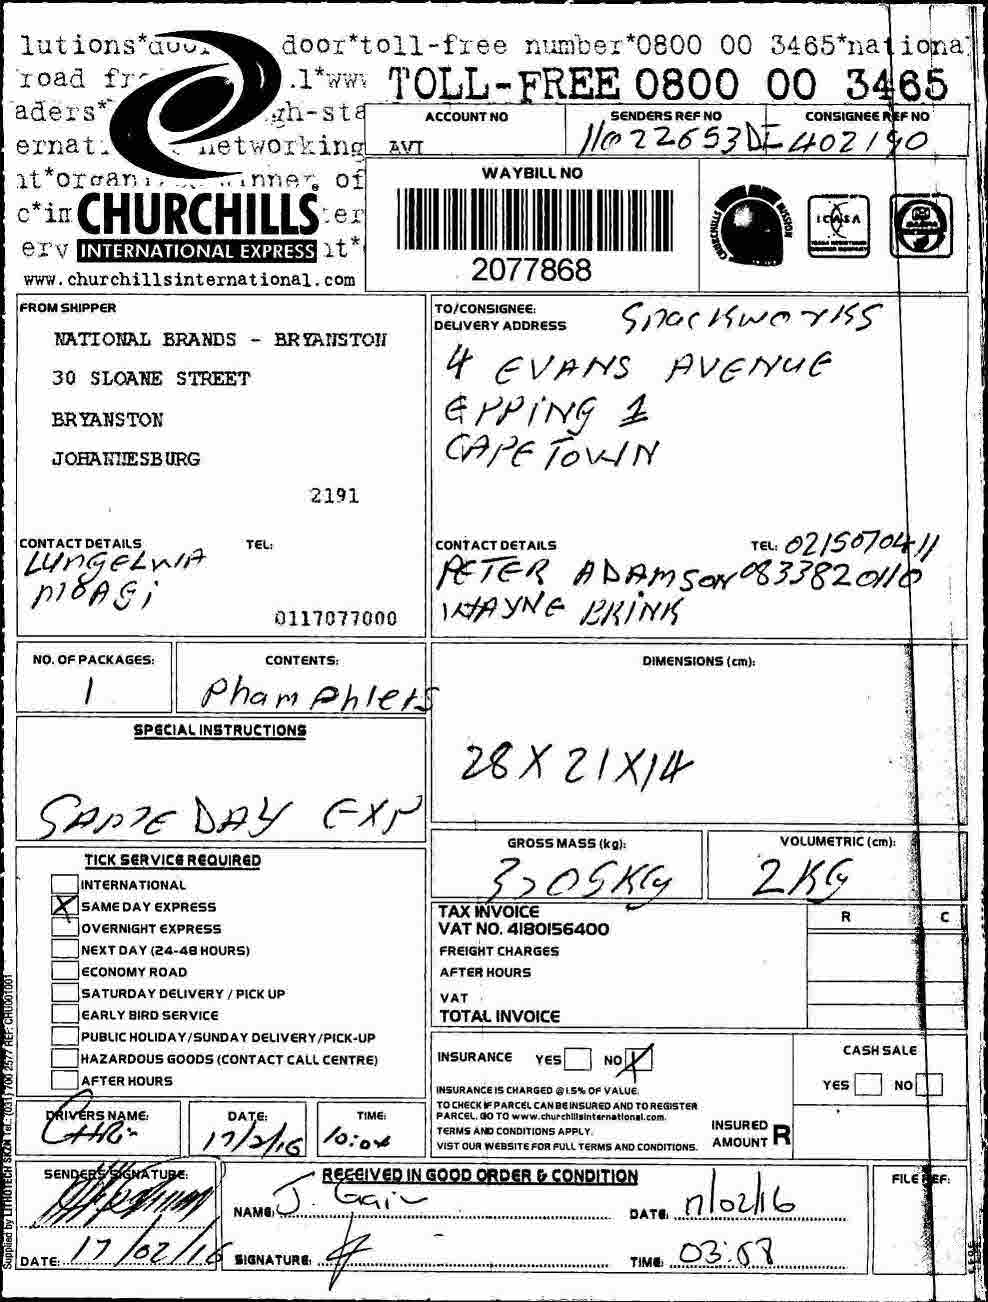 door*toll-free number*0800 00 3465*national
TOLL-FREE 0800 00 3465
ACCOUNT NO
AVI
SENDERS REF NO
CONSIGNEE REF NO
402190
CHURCHILLS
INTERNATIONAL EXPRESS
www.churchillsinternational.com
WAYBILL NO
2077868
CHURCHILLS MISSION
ICASA
FROM SHIPPER
NATIONAL BRANDS - BRYANSTON
30 SLOANE STREET
BRYANSTON
JOHANNESBURG
2191
CONTACT DETAILS
TEL:
0117077000
TO/CONSIGNEE:
DELIVERY ADDRESS
Snackworks
4 EVANS AVENUE
EPPING 1
CAPE TOWN
CONTACT DETAILS
TEL: 0215070411
PETER ADAMSON 0833820110
WAYNE BRINK
NO. OF PACKAGES:
1
CONTENTS:
Phamphlets
DIMENSIONS (cm):
28 X 21 X 14
SPECIAL INSTRUCTIONS
SAME DAY EXP
GROSS MASS (kg):
VOLUMETRIC (cm):
2KG
TICK SERVICE REQUIRED
INTERNATIONAL
X SAME DAY EXPRESS
OVERNIGHT EXPRESS
NEXT DAY (24-48 HOURS)
ECONOMY ROAD
SATURDAY DELIVERY / PICK UP
EARLY BIRD SERVICE
PUBLIC HOLIDAY/SUNDAY DELIVERY/PICK-UP
HAZARDOUS GOODS (CONTACT CALL CENTRE)
AFTER HOURS
TAX INVOICE
VAT NO. 4180156400
R C
FREIGHT CHARGES
AFTER HOURS
VAT
TOTAL INVOICE
INSURANCE YES NO X
INSURANCE IS CHARGED @ 1.5% OF VALUE.
TO CHECK IF PARCEL CAN BE INSURED AND TO REGISTER
PARCEL, GO TO www.churchillsinternational.com.
TERMS AND CONDITIONS APPLY.
VIST OUR WEBSITE FOR FULL TERMS AND CONDITIONS.
CASH SALE
YES NO
INSURED
AMOUNT R
DRIVERS NAME:
DATE:
17/2/16
TIME:
10:04
SENDERS SIGNATURE:
DATE: 17/02/16
RECEIVED IN GOOD ORDER & CONDITION
NAME: J.
DATE: 17/02/16
SIGNATURE:
TIME:
FILE REF:
Supplied by LITHOTECH SKZN Tel.: (031) 700 2577 REF: CHU001001